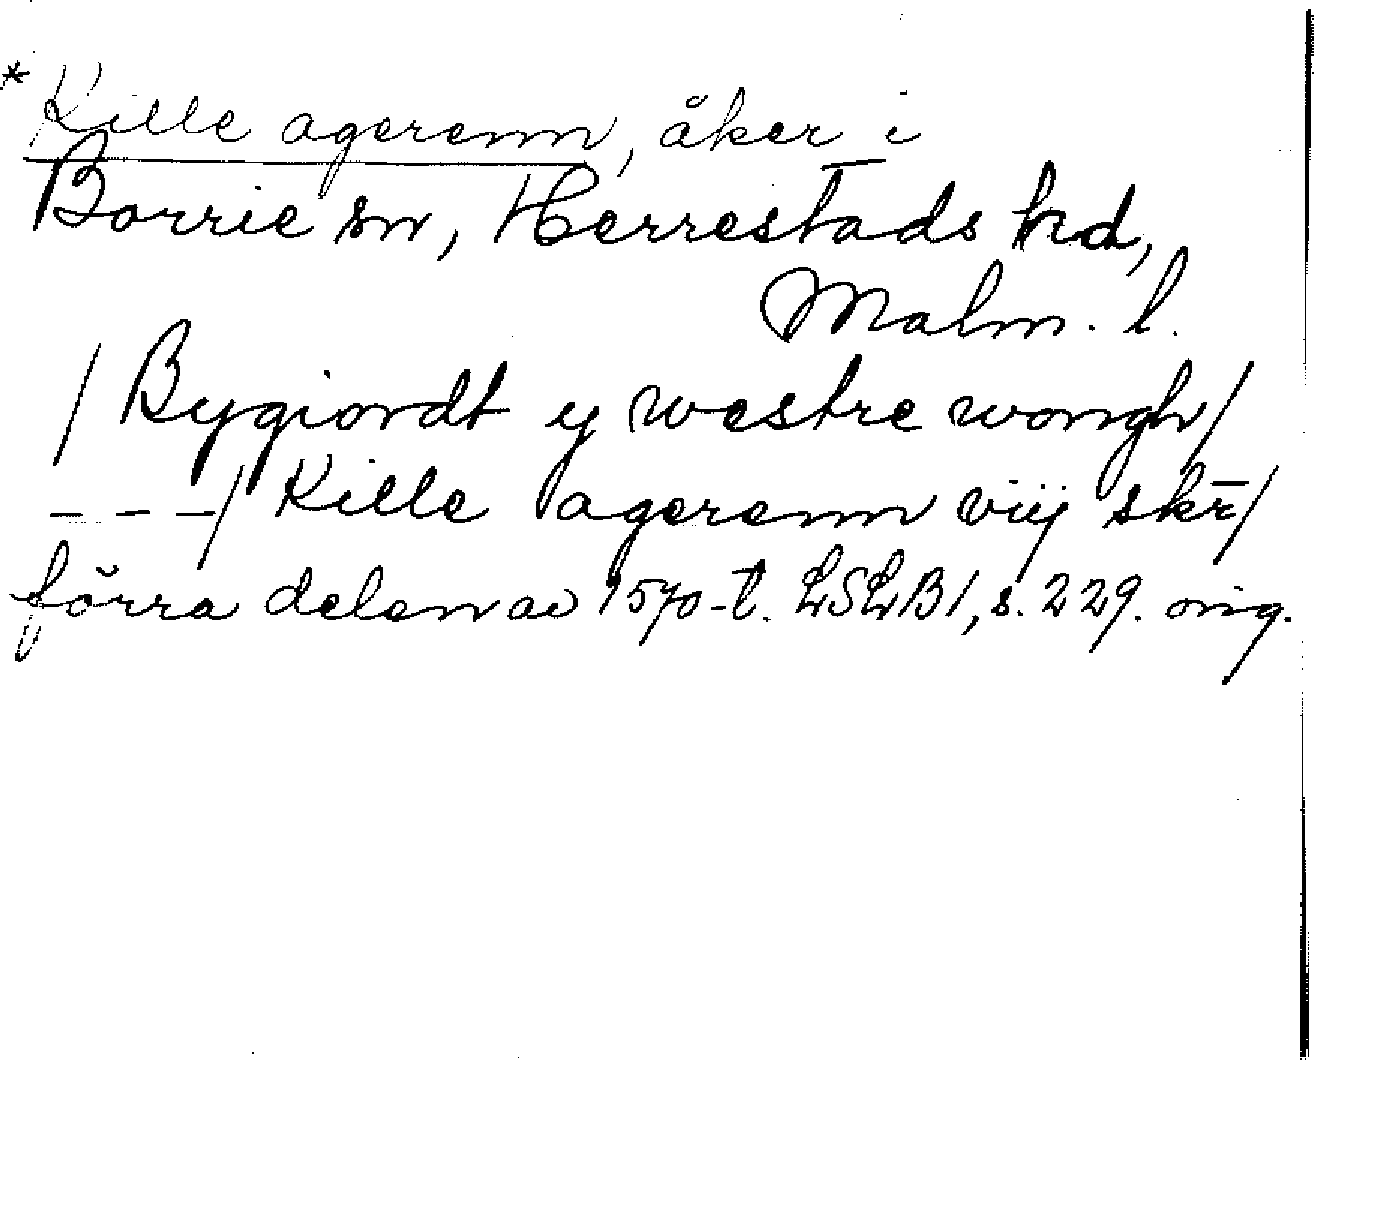 * Kille agerenn, åker i
Borrie sn, Herrestads hd,
Malm. l.
/ Bygiordt y westre wongh/
– – –/ Kille agerenn viij skr̄/
förra delen av 1570-t. LSLB1, s. 229. orig.